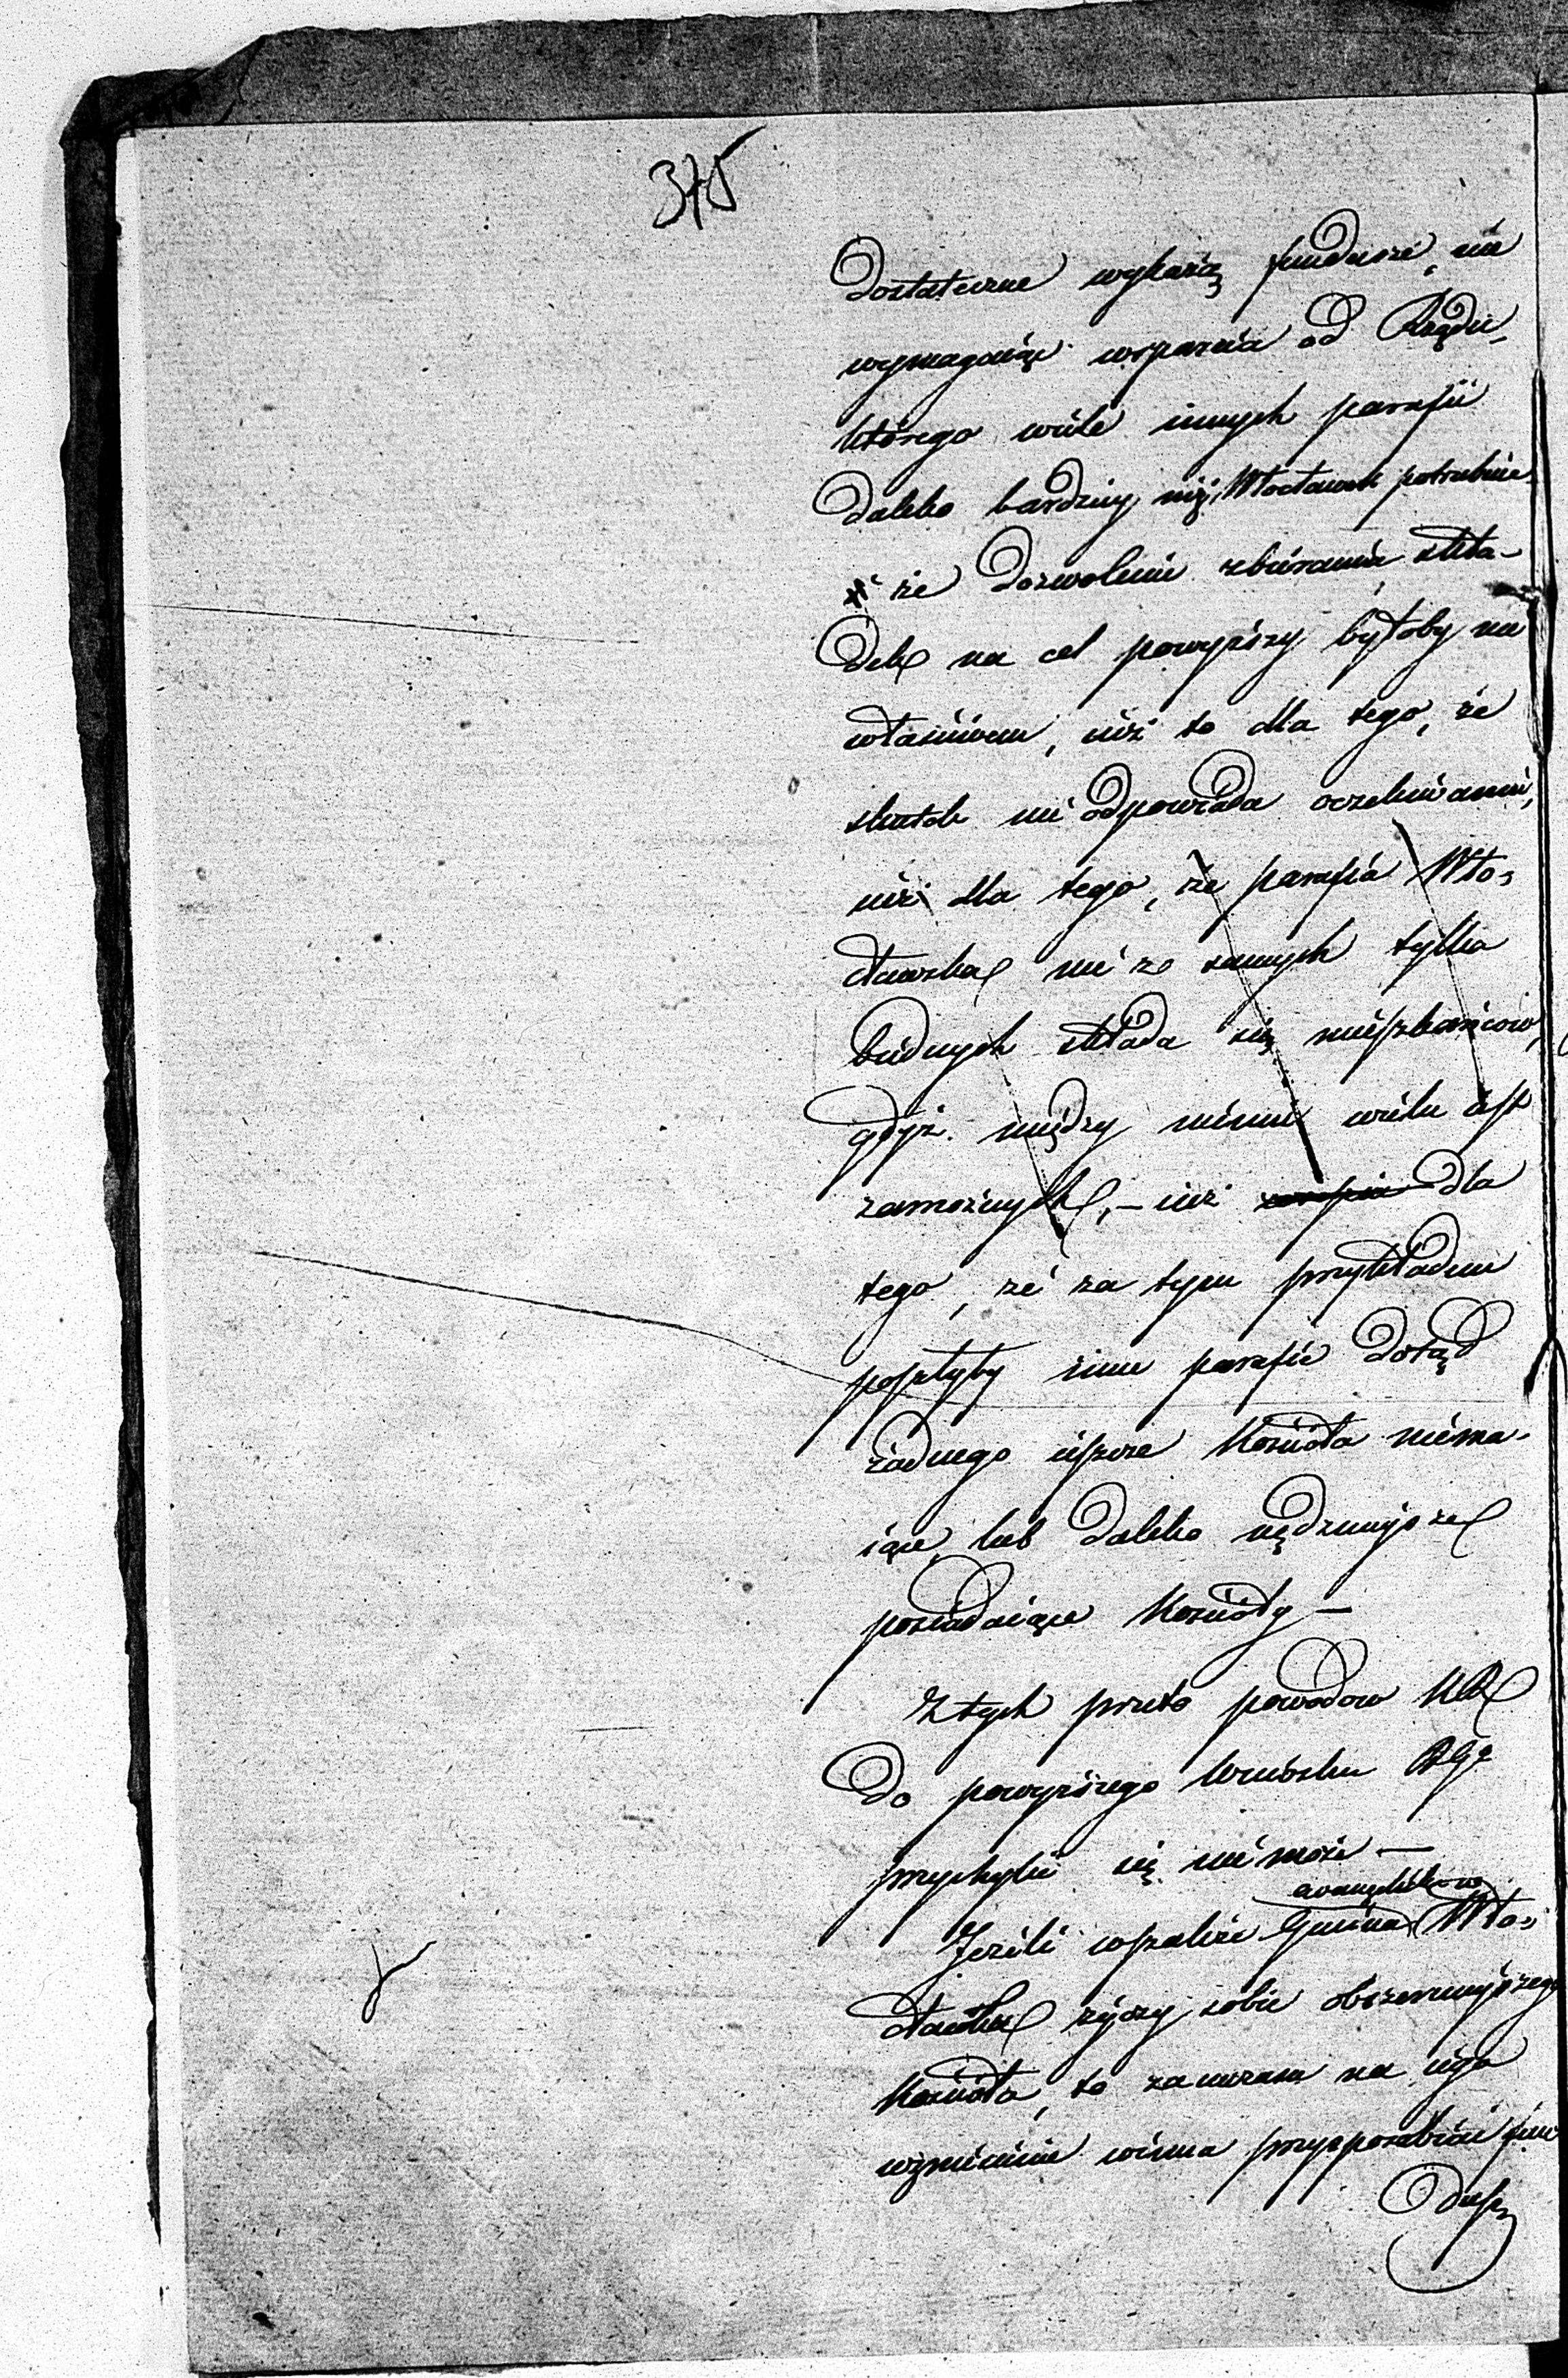 375
dostateczne wykażą fundusze, nie
wymagaiąc wsparcia od Rządu,
którego wiele innych parafii
daleko bardziey niż Włocławek potrzebuie
i że dozwolenie zbierania skła-
dek na cel powyższy byłoby nie
właściwem, iuż to dla tego, że
skutek nie odpowiada oczekiwaniu,
iuż dla tego, że parafia Wło-
cławska nie ze samych tylko
biednych składa się mieszkańców,
gdyż między niemi wielu iest
zamożnych, – iuż dla
tego, że za tym przykładem
poszłyby inne parafie dotąd
żadnego ieszcze Kościoła niema-
iące, lub daleko nędznieysze
posiadaiące Kościoły –
Z tych przeto powodów KR
do powyższego wniosku
przychylić się nie może –
ewangelicka
Jeżeli wszakże Gmina Wło-
cławska życzy sobie obszernieyszego
Kościoła, to zawczasu na iego
wzniesienie winna przysposabiać fun
dusz